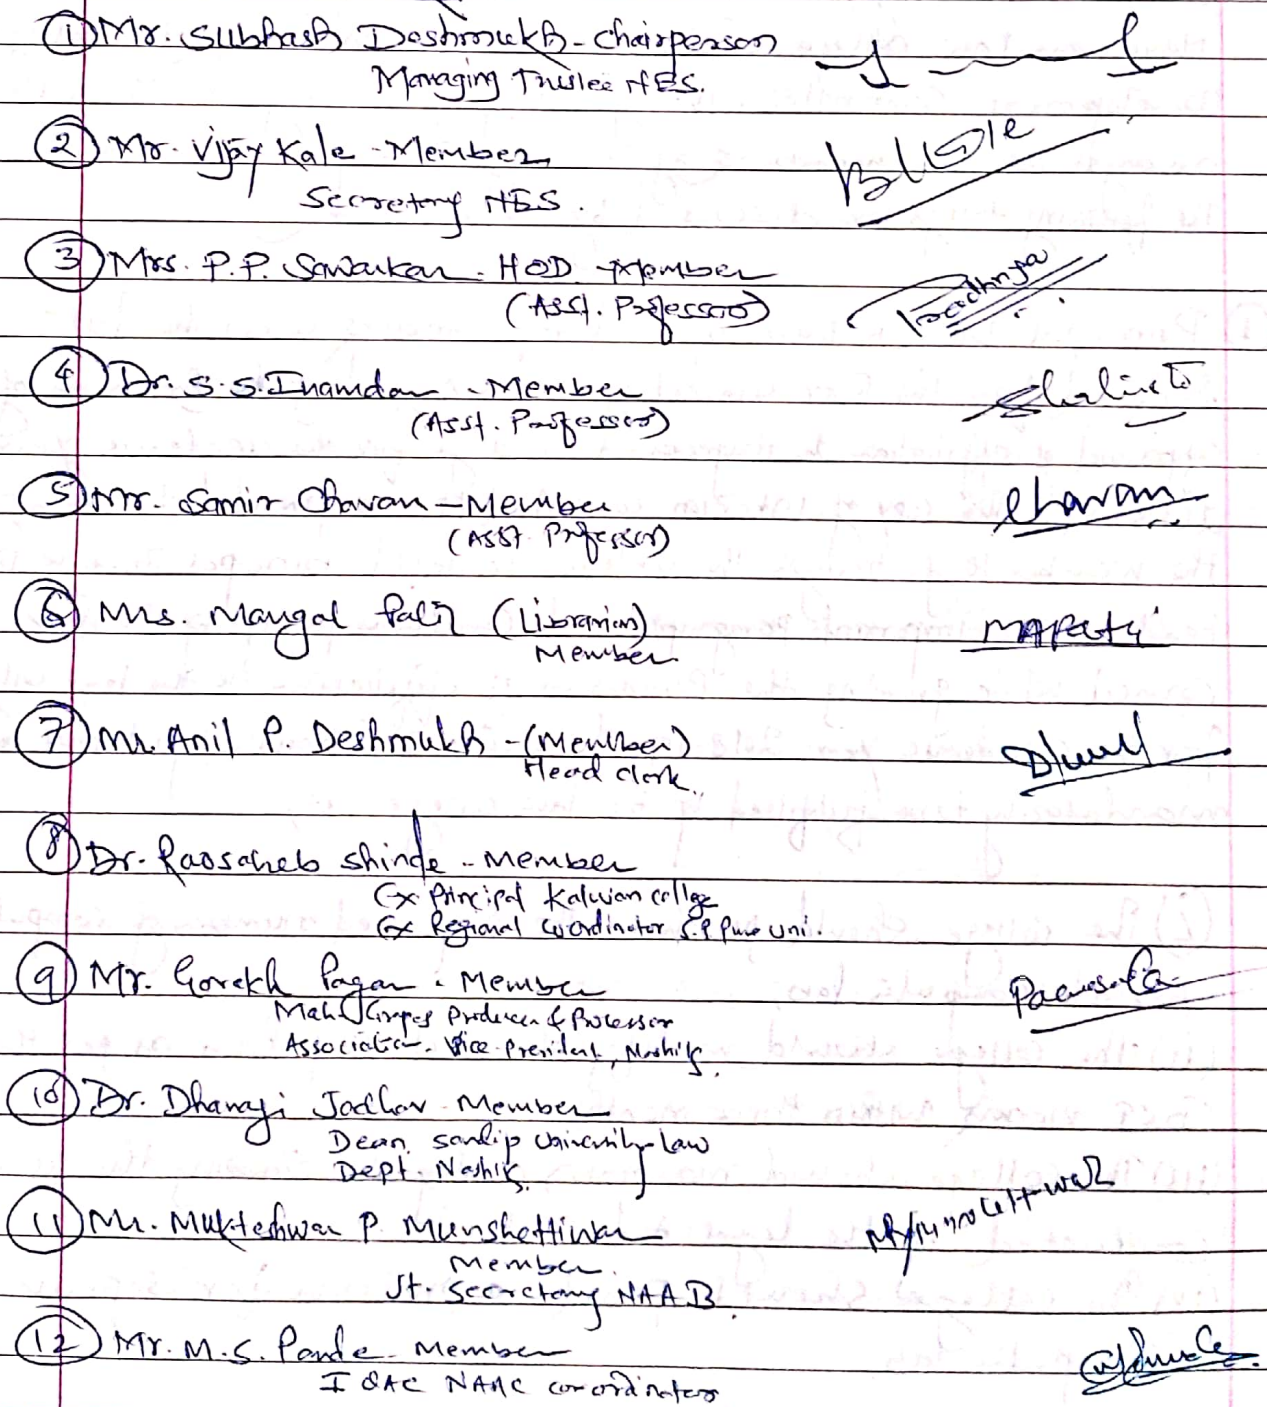 ① Mr. Subhash Deshmukh - Chairperson
Managing Trustee NES.
② Mr. Vijay Kale - Member
Secretary NES.
③ Mrs. P.P. Sawarkar - HOD Member
(Asst. Professor)
④ Dr. S.S. Inamdar - Member
(Asst. Professor)
⑤ Mr. Samir Chavan - Member
(Asst Professor)
chavan
⑥ Mrs. Mangal Patil (Librarian)
Member
MAPatil
⑦ Mr. Anil P. Deshmukh - (Member)
Head clerk.
⑧ Dr. Raosaheb Shinde - Member
Ex. Principal Kalwan collge
Ex Regional Coordinator S.P Pune Uni.
⑨ Mr. Gorakh Pagar - Member
Mah. Grapes Producer & Processor
Association. Vice-President, Nashik.
⑩ Dr. Dhanaji Jadhav - Member
Dean, Sandip University Law
Dept. Nashik.
⑪ Mr. Mukteshwar P. Munshettiwar
Member.
Jt. Secretary NAAB.
⑫ Mr. M.S. Pande - Member
IQAC NAAC co-ordinator